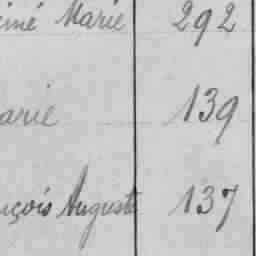 imé Marie 292
arie 139
nçois Auguste 137